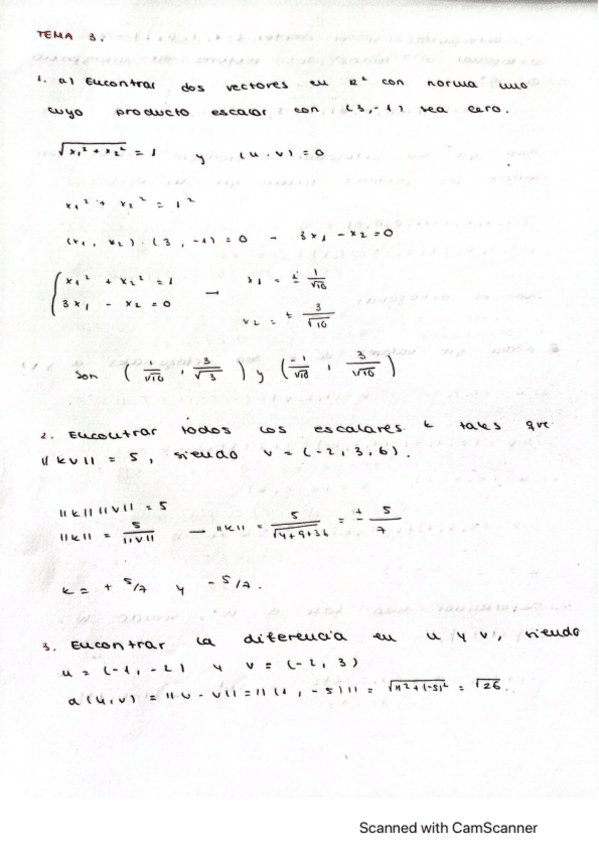 TEMA 3.
1. a) Encontrar dos vectores en R² con norma uno
cuyo producto escalar con (3,-1) sea cero.
√x₁² + x₂² = 1 y (u, v) = 0
x₁² + x₂² = 1²
(x₁, x₂) · (3, -1) = 0 → 3x₁ - x₂ = 0
{ x₁² + x₂² = 1 → x₁ = ± 1/√10
3x₁ - x₂ = 0 x₂ = ± 3/√10
Son (1/√10, 3/√3) y (-1/√10, 3/√10)
2. Encontrar todos los escalares k tales que
||kv|| = 5, siendo v = (-2, 3, 6).
||k|| ||v|| = 5
||k|| = 5/||v|| → ||k|| = 5/√4+9+36 = ± 5/7
k = + 5/7 y - 5/7.
3. Encontrar la diferencia en u y v, siendo
u = (-1, -2) y v = (-2, 3)
d(u,v) = ||u - v|| = ||(1, -5)|| = √1²+(-5)² = √26.
Scanned with CamScanner